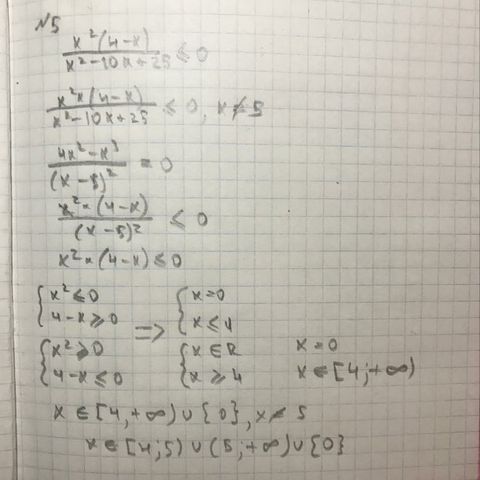 №5
x²(4-x) / x²-10x+25 ≤ 0
x²×(4-x) / x²-10x+25 ≤ 0, x≠5
4x²-x³ / (x-5)² = 0
x²×(4-x) / (x-5)² ≤ 0
x²×(4-x)≤0
{ x²≤0 ; 4-x≥0 => { x=0 ; x≤4
{ x²≥0 ; 4-x≤0 { x∈R ; x≥4 x=0 ; x∈[4;+∞)
x∈[4,+∞)∪{0}, x≠5
x∈[4;5)∪(5;+∞)∪{0}